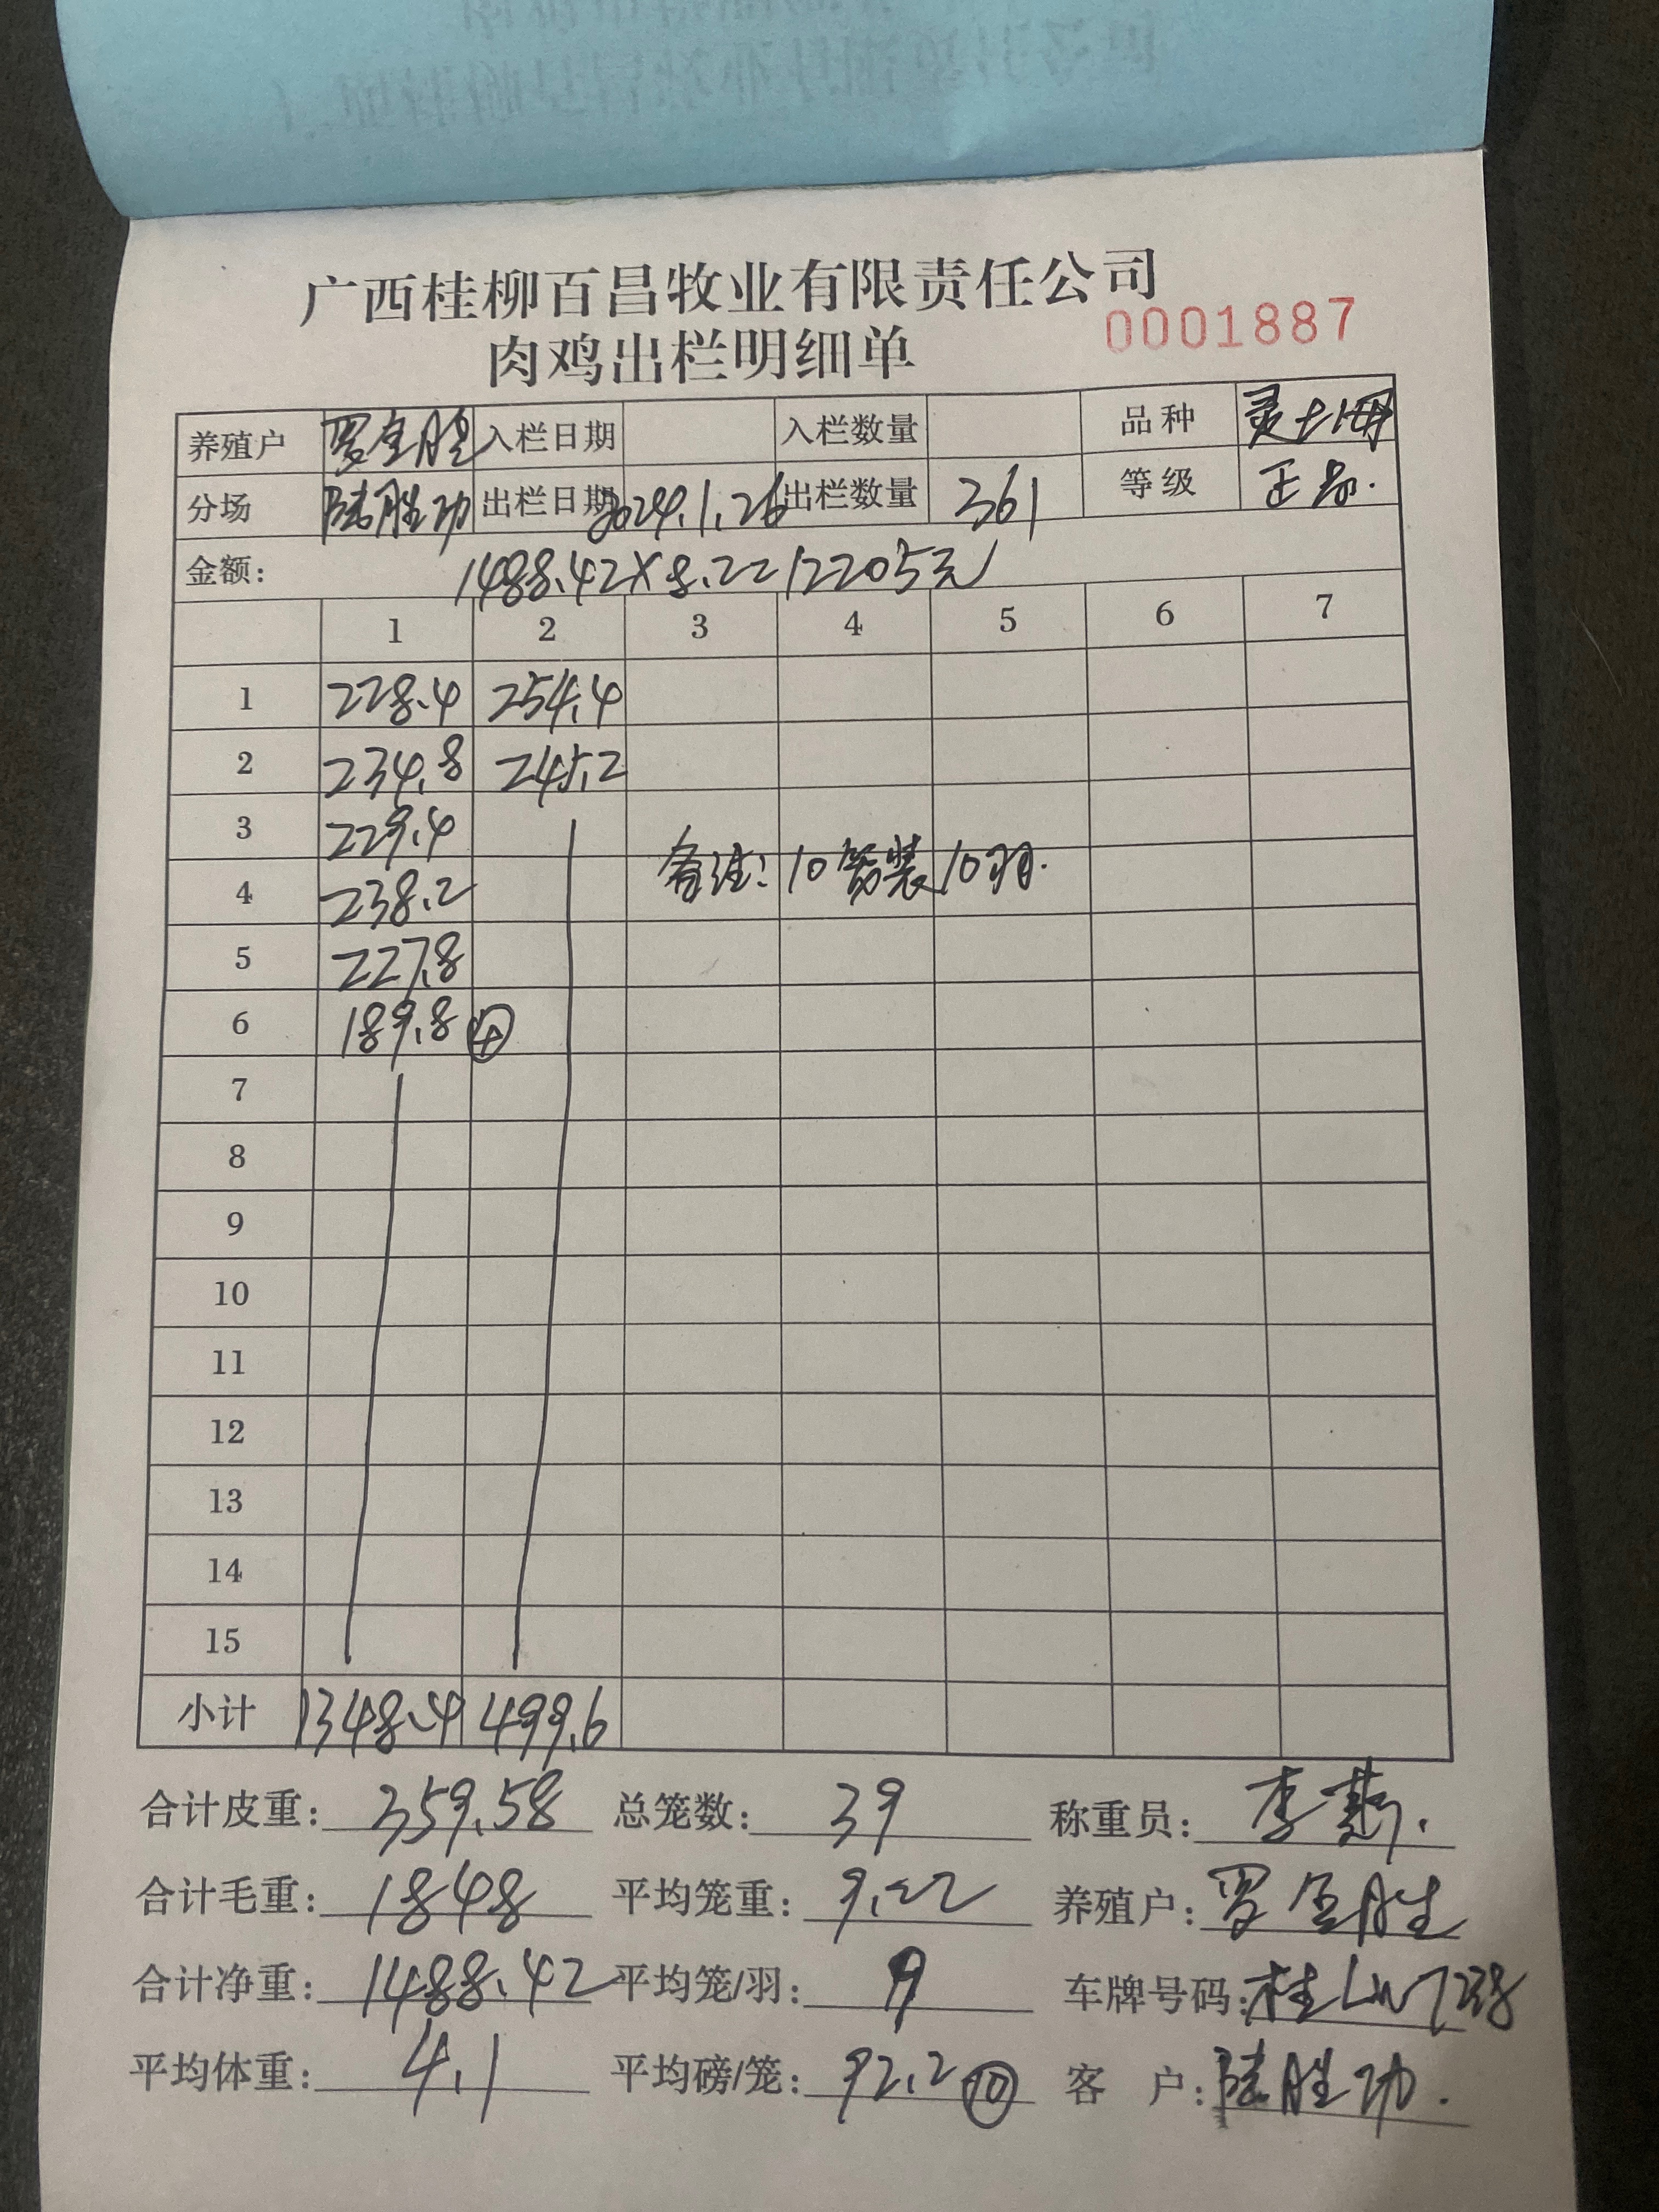 广西桂柳百昌牧业有限责任公司
肉鸡出栏明细单 0001887
养殖户 罗金胜 入栏日期 入栏数量 品种
分场 陆胜功 出栏日期 2024.1.26 出栏数量 361 等级 正品.
金额: 1488.42×8.2=12205元
1 2 3 4 5 6 7
1 228.4 254.4
2 234.8 245.2
3 229.4
备注: 10笼装10羽.
4 238.2
5 227.8
6 189.8 ④
7
8
9
10
11
12
13
14
15
小计 1348.4 499.6
合计皮重: 359.58 总笼数: 39 称重员: 李
合计毛重: 1848 平均笼重: 9.22 养殖户: 罗金胜
合计净重: 1488.42 平均笼/羽: 9 车牌号码: 桂L
平均体重: 4.1 平均磅/笼: 92.2 ⑩ 客 户: 陆胜功.